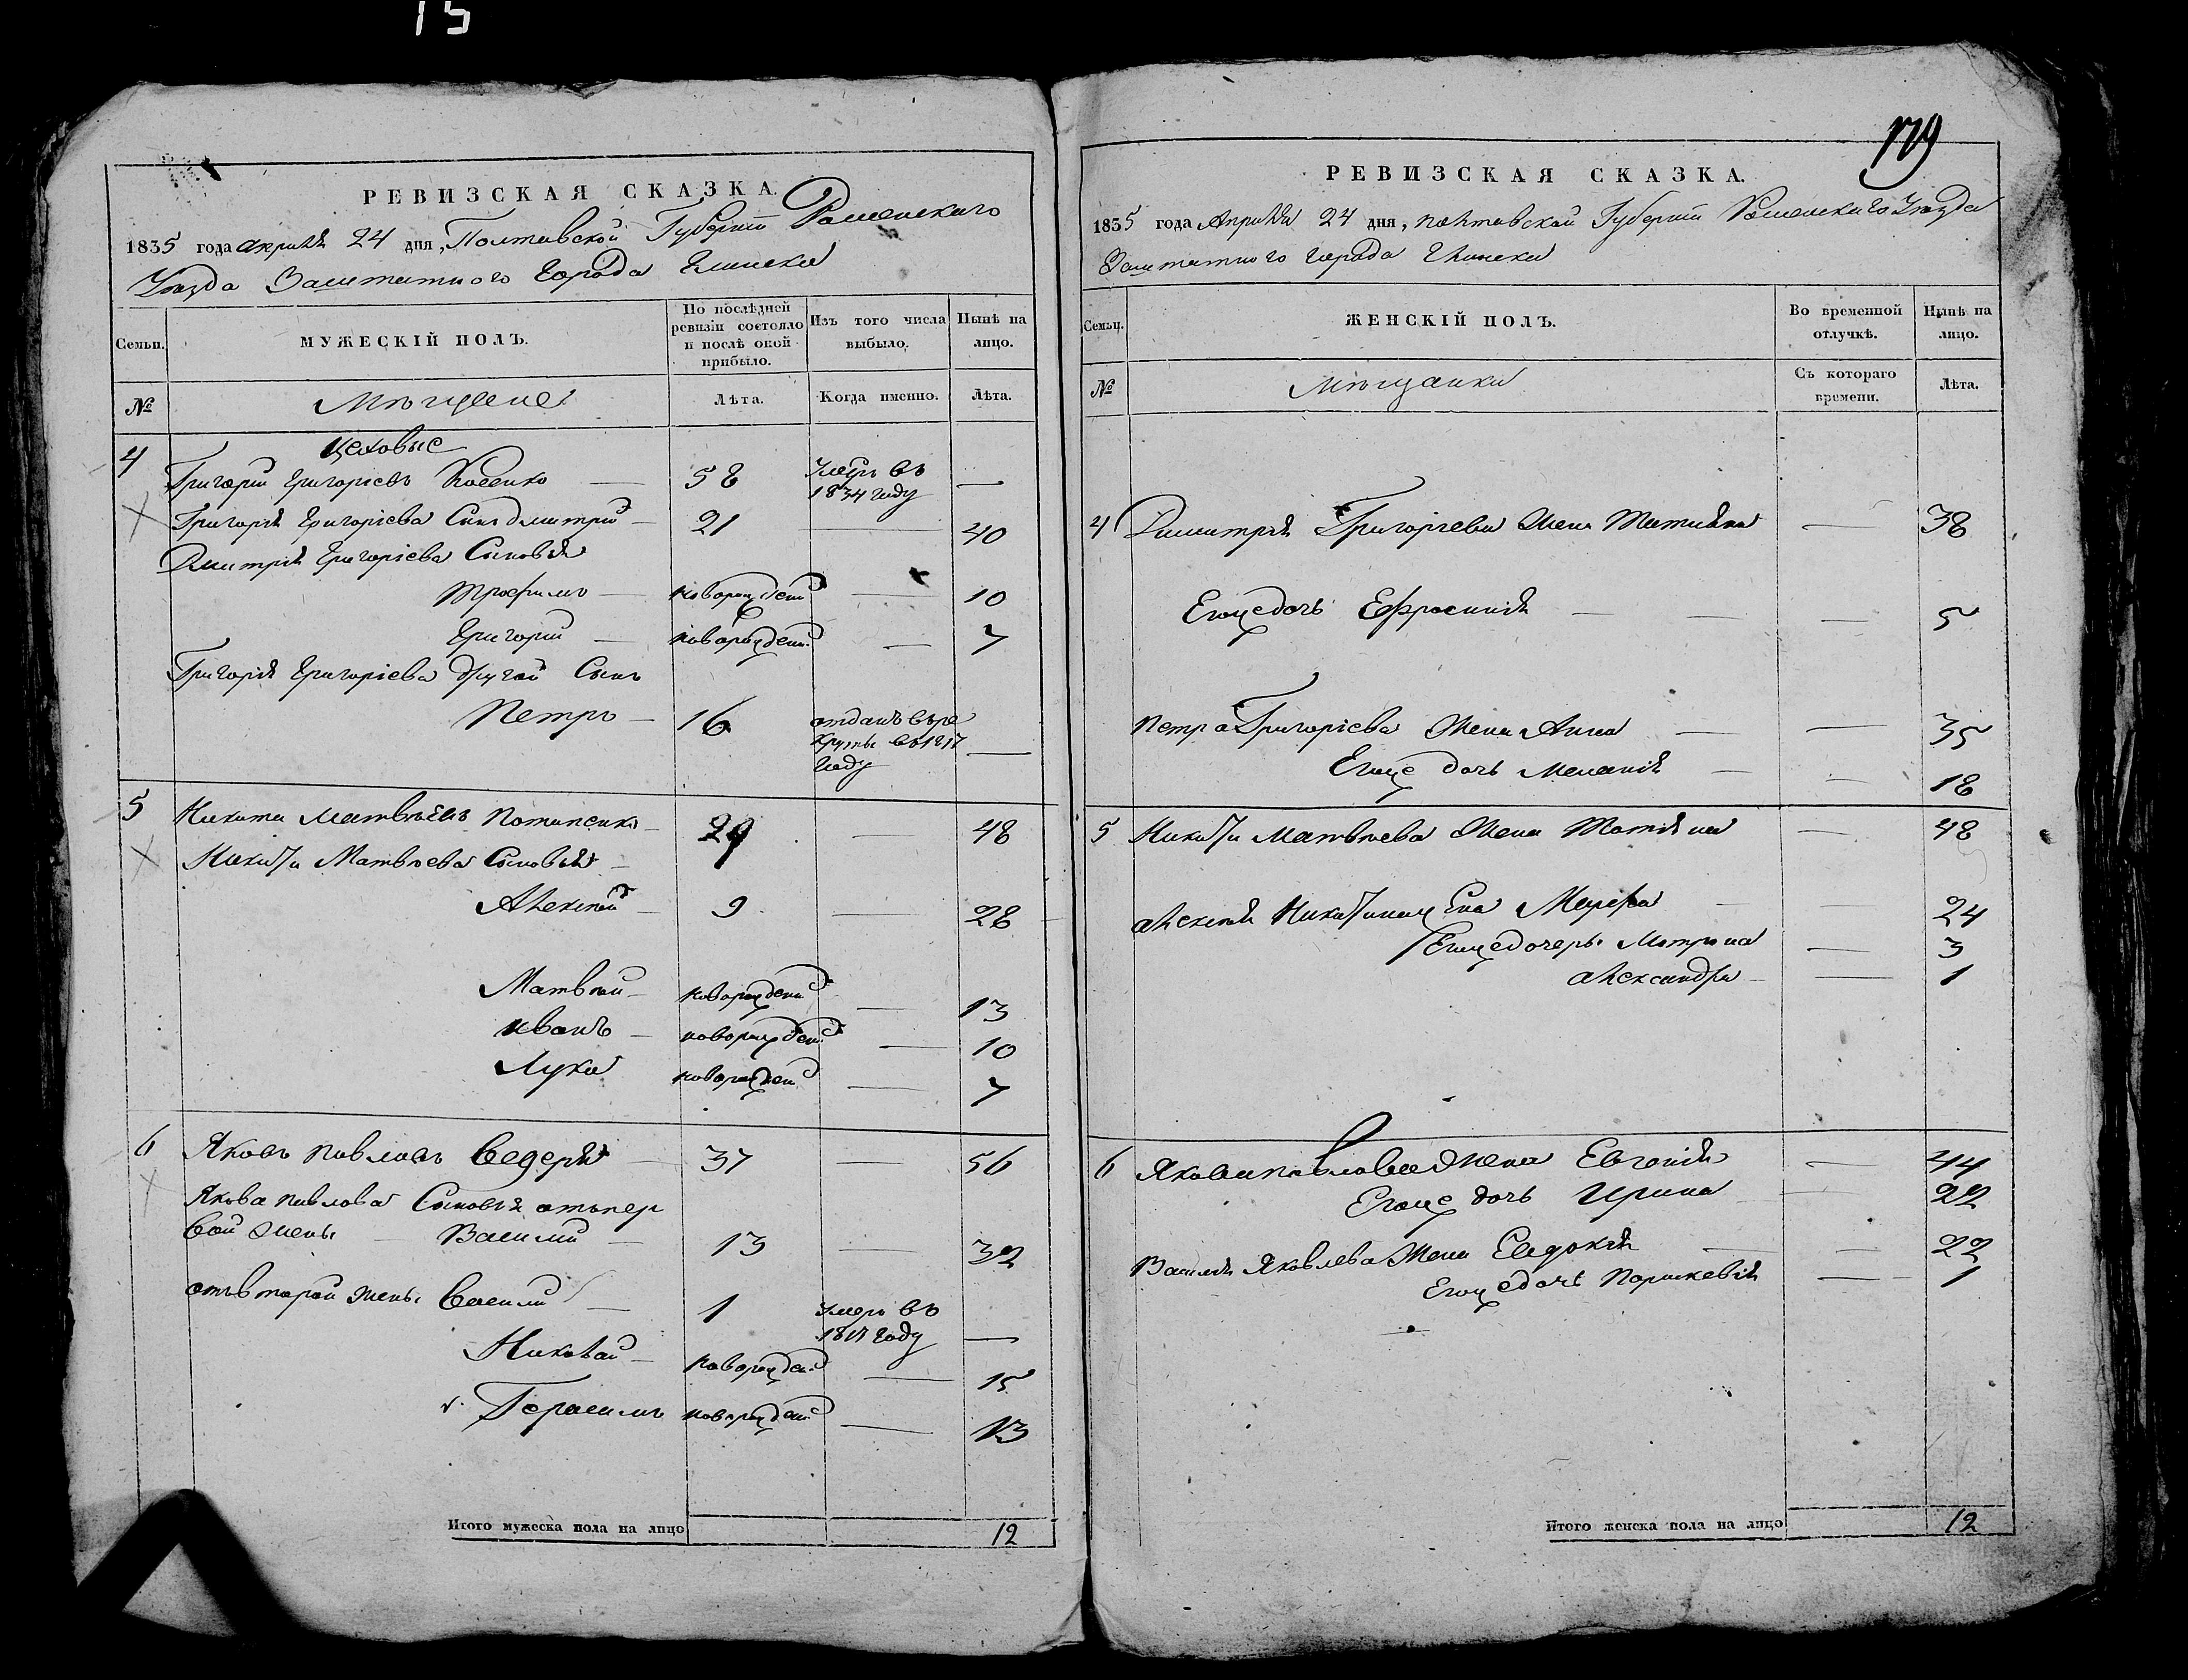 15
179
РЕВИЗСКАЯ СКАЗКА.
1835 года апрѣля 24 дня, Полтавской Губерніи Роменского
Уѣзда Заштатного города Глинска
Семьи.
МУЖЕСКІЙ ПОЛЪ.
По послѣдней ревизіи состояло и послѣ оной прибыло.
Изъ того числа выбыло.
Нынѣ на лицо.
№
Мѣщане
Лѣта.
Когда именно.
Лѣта.
цеховые
4 Григорій Григорьевъ 58 умеръ въ 1834 году —
Григорія Григоріева Сынъ Дмитрій 21 — 40
Дмитрія Григоріева Сыновья
Трофимъ — новорожден — 10
Григорій — новорожден — 7
Григорія Григоріева другой Сынъ
Петръ — 16 отданъ въ ре
круты въ 1817
году —
5 Никита Матвѣевъ Потапенко 29 — 48
Никиты Матвѣева Сыновья
Алексѣй 9 — 28
Матвѣй — новорожден — 13
Иванъ — новорожден — 10
Лука новорожден — 7
6 Яковъ Павловъ 37 — 56
Якова Павлова Сыновья отъ пер
вой жены — Василий — 13 — 32
отъ второй жены Василий — 1 умеръ въ
году —
Николай — новорожден — 15
Герасимъ новорожден — 13
Итого мужеска пола на лицо 12
РЕВИЗСКАЯ СКАЗКА.
1835 года Апрѣля 24 дня, Полтавской Губерніи Роменского Уѣзда
Заштатного города Глинска
Семьи.
ЖЕНСКІЙ ПОЛЪ.
Во временной отлучкѣ.
Нынѣ на лицо.
№
Мѣщанки
Съ котораго времени.
Лѣта.
4 Димитрія Григоріева Жена Татияна — 38
Егоже дочь Ефросинія — 5
Петра Григоріева Жена Анна — 35
Егоже дочь Меланія — 18
5 Никиты Матвѣева Жена Татіяна — 48
Алексѣя Никитина жена Марфа — 24
Егоже дочери Матрона — 3
Александра — 1
6 Якова Павлова Жена Евгенія — 44
Егоже дочь Ирина — 22
Василія Яковлева Жена Евдокія — 22
Егоже дочь Параскевія — 1
Итого женска пола на лицо 12